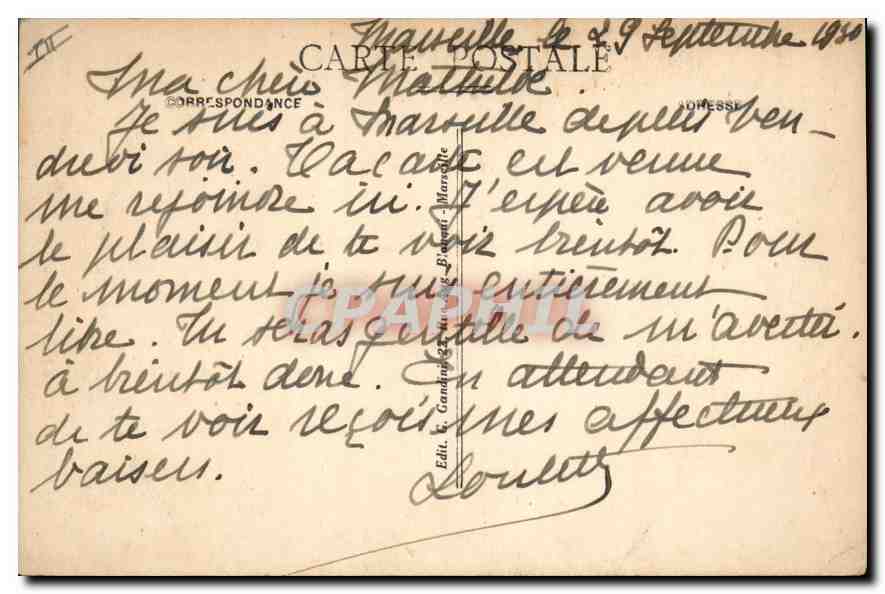 III
Marseille le 29 Septembre 1930
CARTE POSTALE
Ma chère Mathilde.
CORRESPONDANCE
ADRESSE
Je suis à Marseille depuis Ven-
dredi soir. est venue
me rejoindre ici. J'espère avoir
le plaisir de te voir bientôt. Pour
le moment je suis entièrement
libre. Tu seras gentille de m'avertir.
à bientôt donc. En attendant
de te voir reçois mes affectueux
baisers.
Loulette
Edit. G. Gandini, 22, Rue Aug. Blanqui - Marseille
CPAPHIL